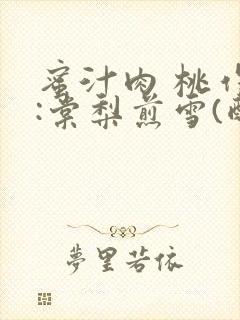 蜜汁肉桃作
:棠梨煎雪(
夢里若依